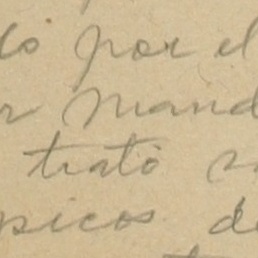 ló por el
r mand
trató s
picos de